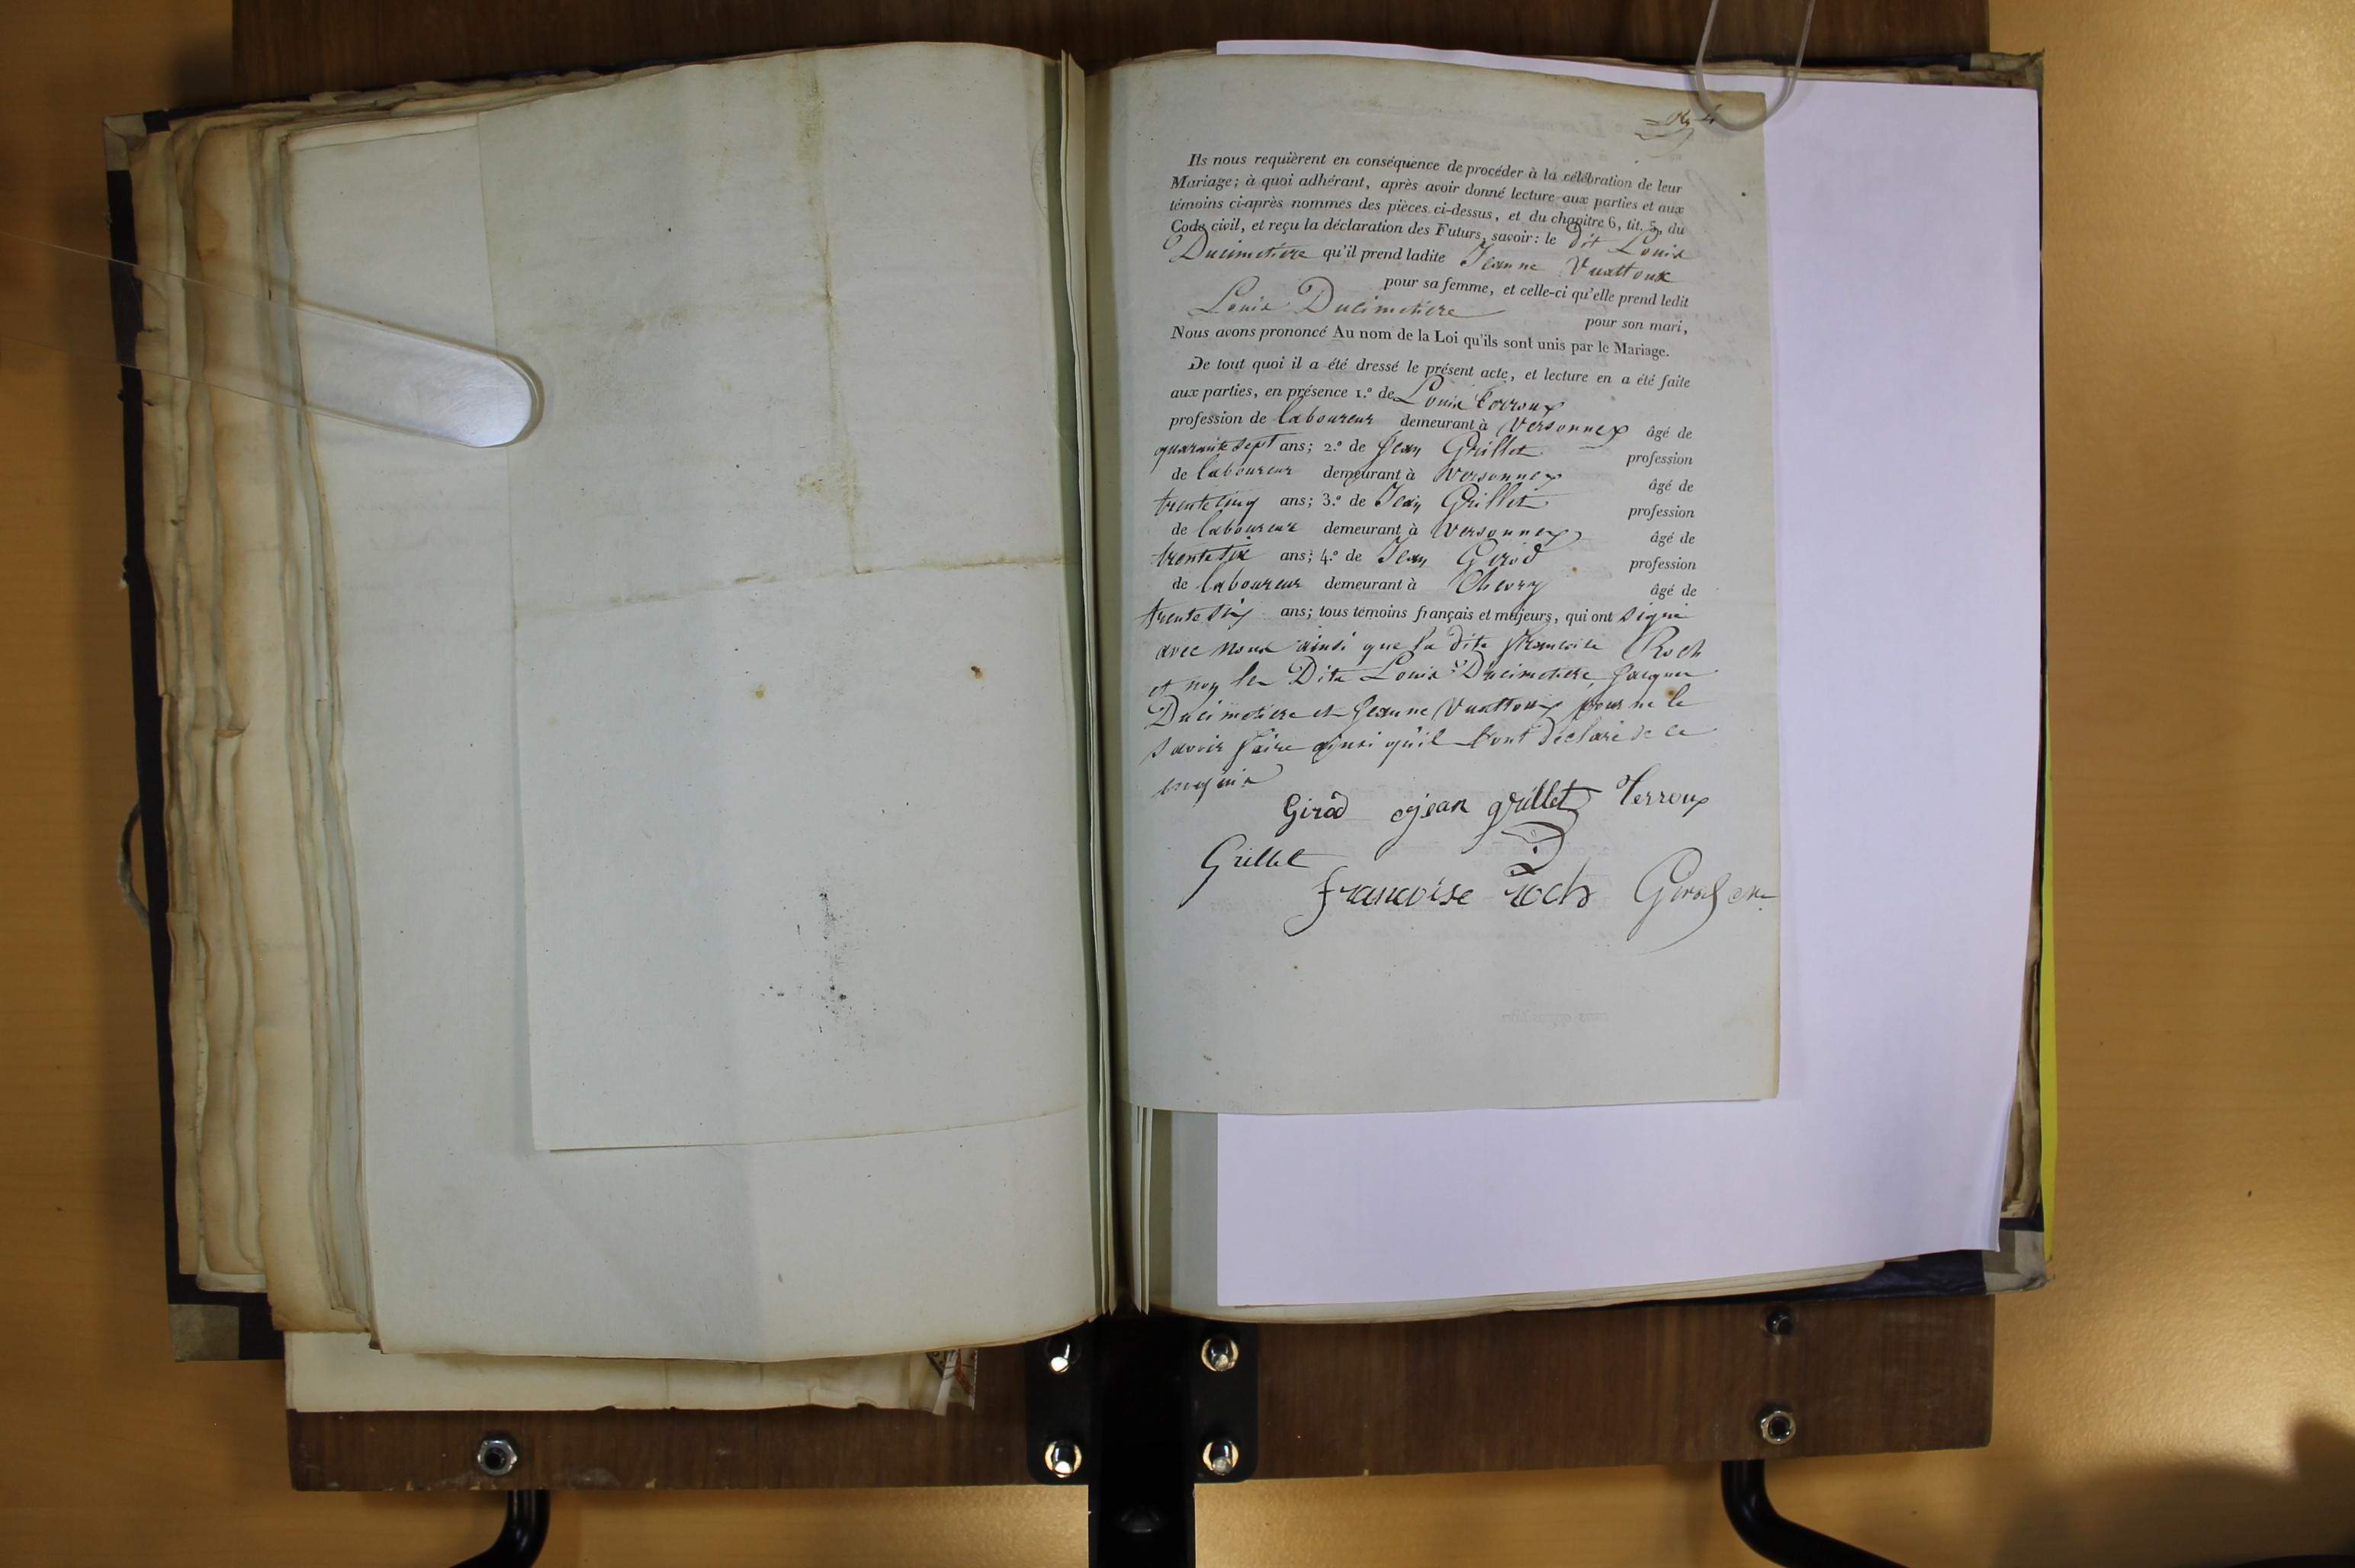 Ils nous requièrent en conséquence de procéder à la célébration de leur
Mariage; à quoi adhérant, après avoir donné lecture aux parties et aux
témoins ci-après nommés des pièces ci-dessus, et du chapitre 6, tit. 5, du
Code civil, et reçu la déclaration des Futurs, savoir: le dit Louis
Ducimetière qu'il prend ladite Jeanne Vuattoux
pour sa femme, et celle-ci qu'elle prend ledit
Louis Ducimetière pour son mari,
Nous avons prononcé Au nom de la Loi qu'ils sont unis par le Mariage.
De tout quoi il a été dressé le présent acte, et lecture en a été faite
aux parties, en présence 1.º de Louis Terroux
profession de laboureur demeurant à Versonnex âgé de
quarante sept ans; 2.º de Jean Grillet profession
de laboureur demeurant à Versonnex âgé de
trente cinq ans; 3.º de Jean Grillet profession
de laboureur demeurant à Versonnex âgé de
trente six ans; 4.º de Jean Girod profession
de laboureur demeurant à Chevry âgé de
trente six ans; tous témoins français et majeurs, qui ont signé
avec nous ainsi que la dite francoise Roch
et non les Dits Louis Ducimetière, Jacques
Ducimetière et Jeanne Vuattoux pour ne le
savoir faire ainsi qu'il l'ont déclaré de ce
enquis
Girod jean grillet Terroux
Grillet
francoise roch Girod